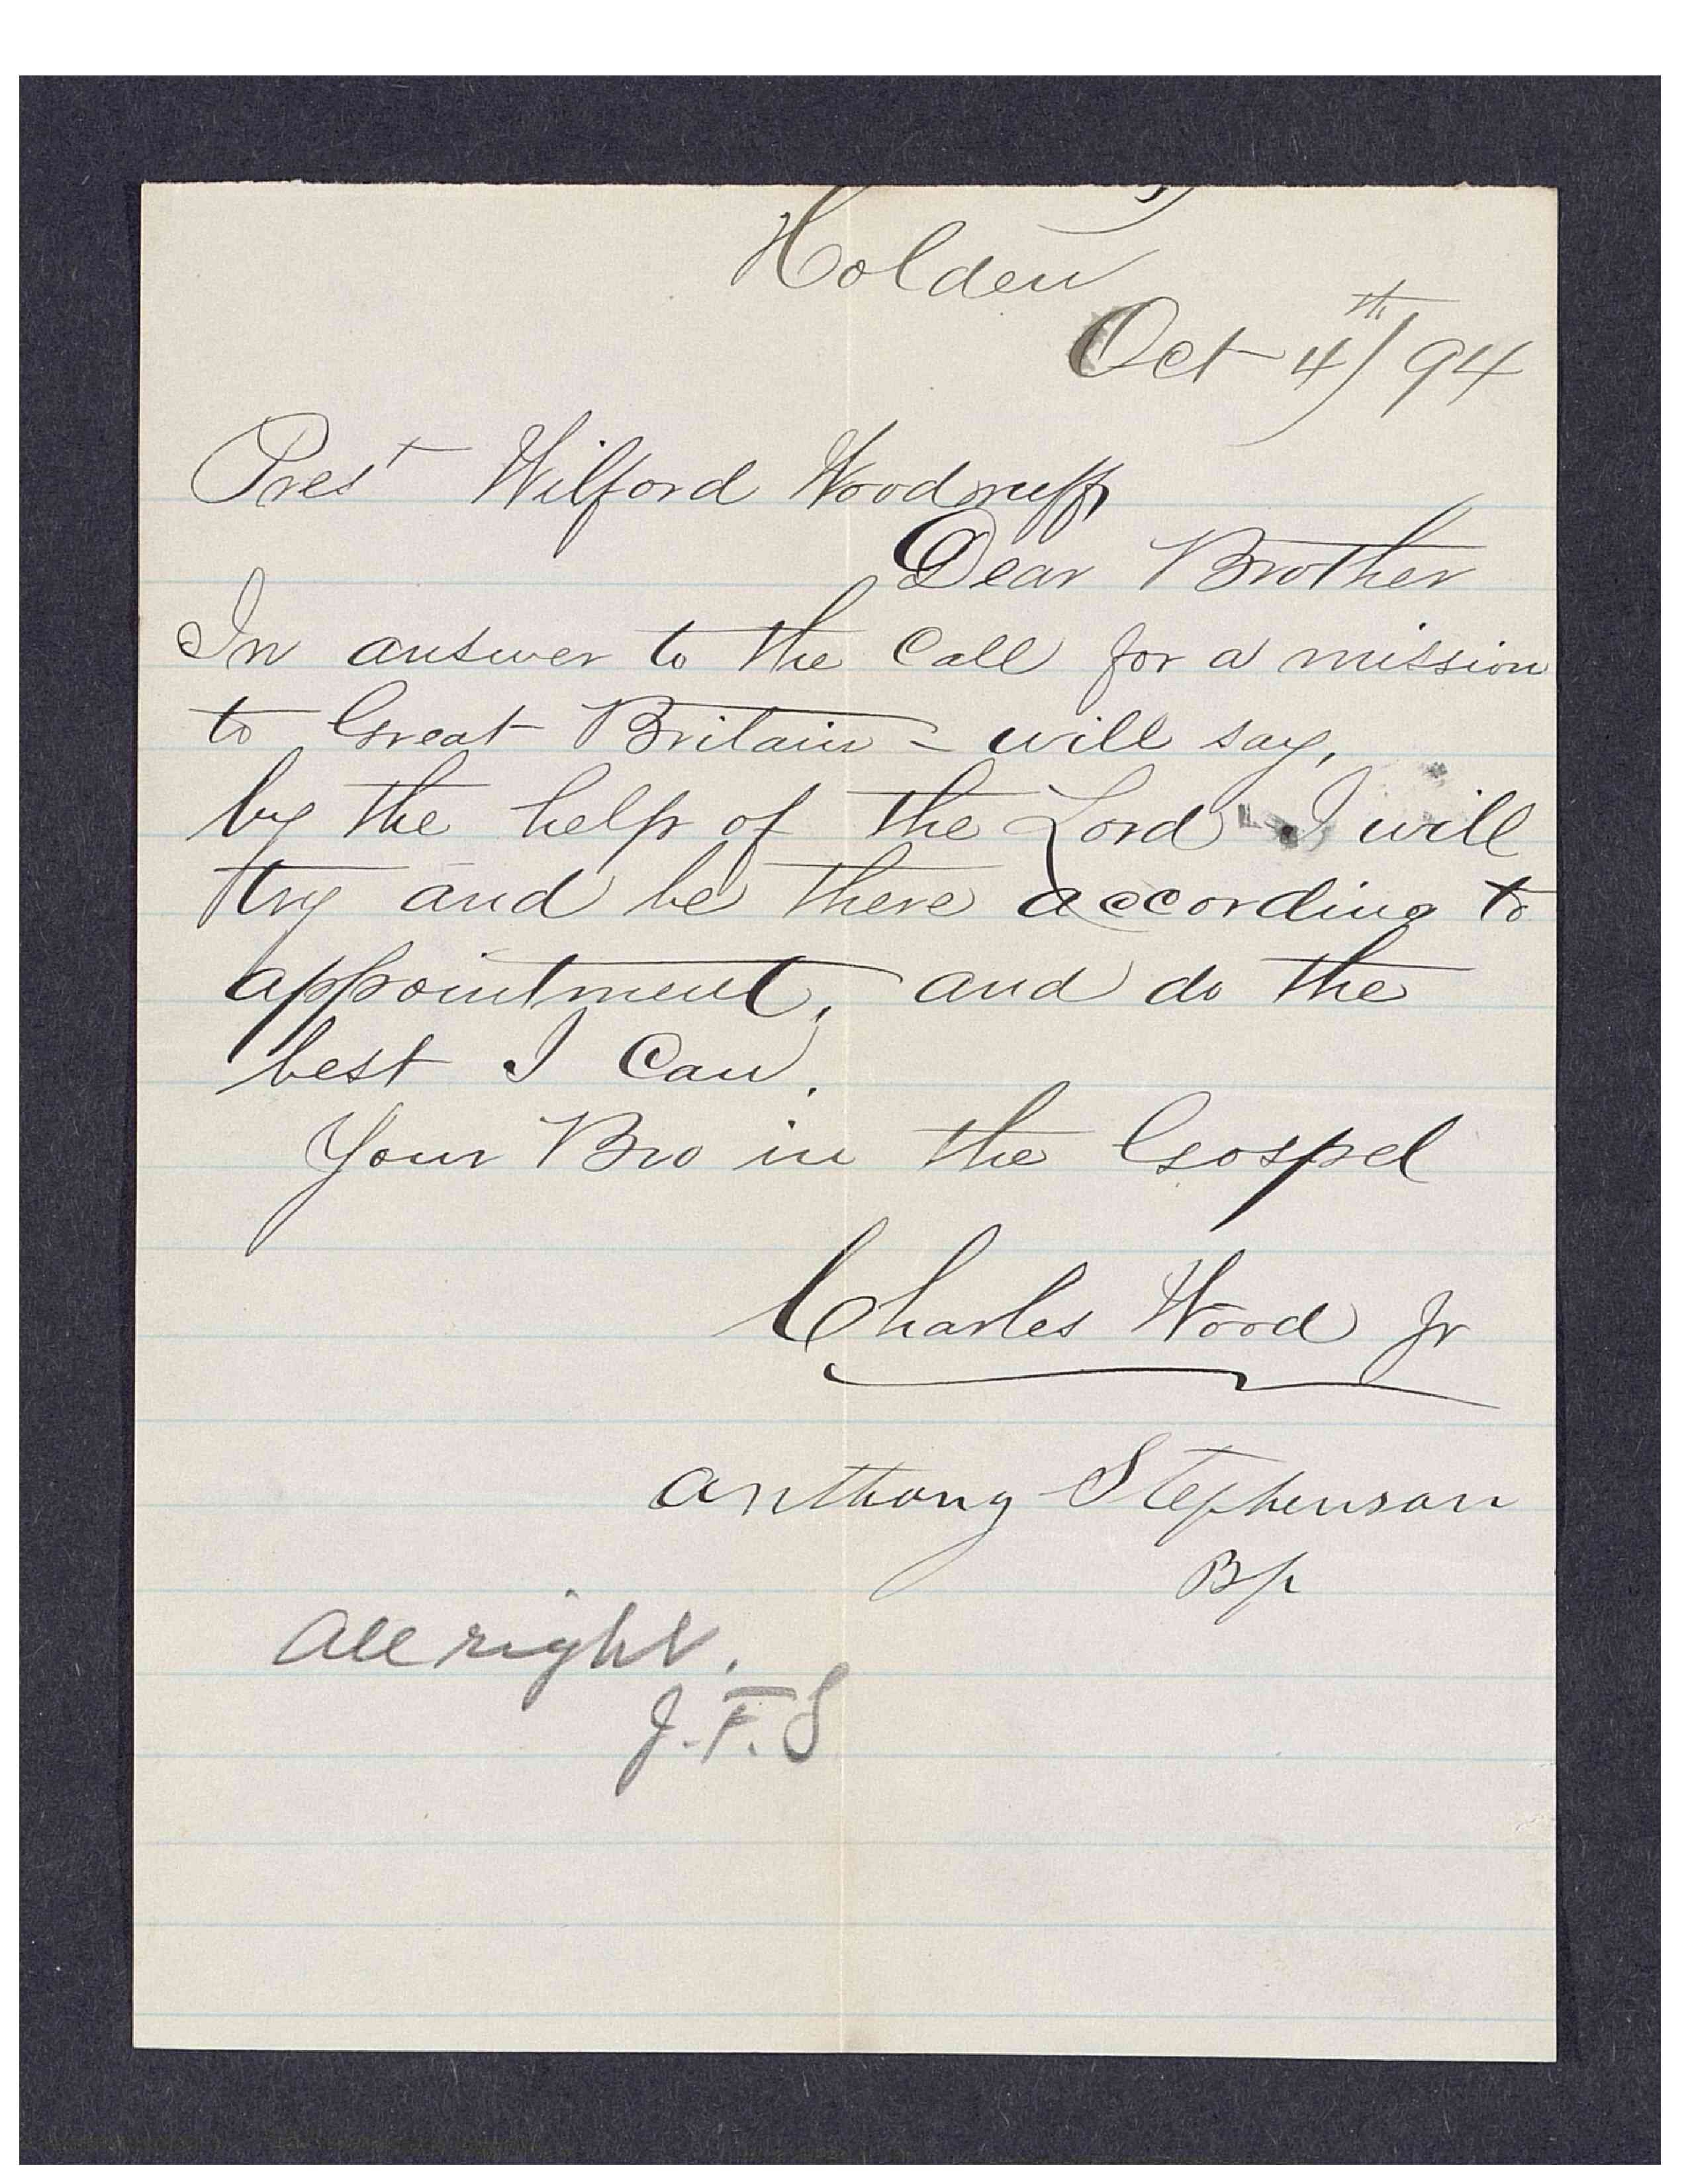 Holden
Oct 4th/94
Prest Wilford Woodruff,
Dear Brother
In answer to the Call for a mission
to Great Britain - will say,
by the help of the Lord I will
try and be there according to
appointment, and do the
best I Can.
Your Bro in the Gospel
Charles Wood Jr
Anthony Stephenson
Bp
All right.
J.F.S